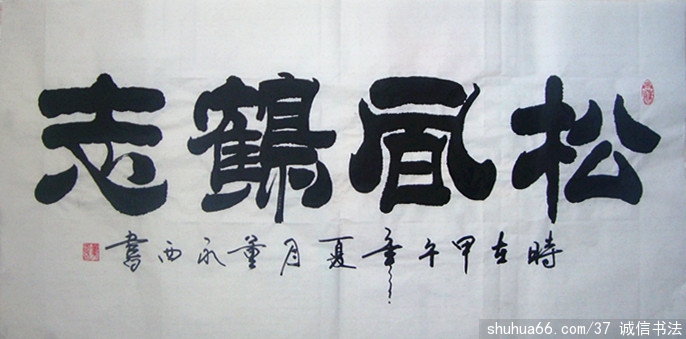 松凮鶴志
時在甲午年夏月董永西書
shuhua66.com/37 诚信书法